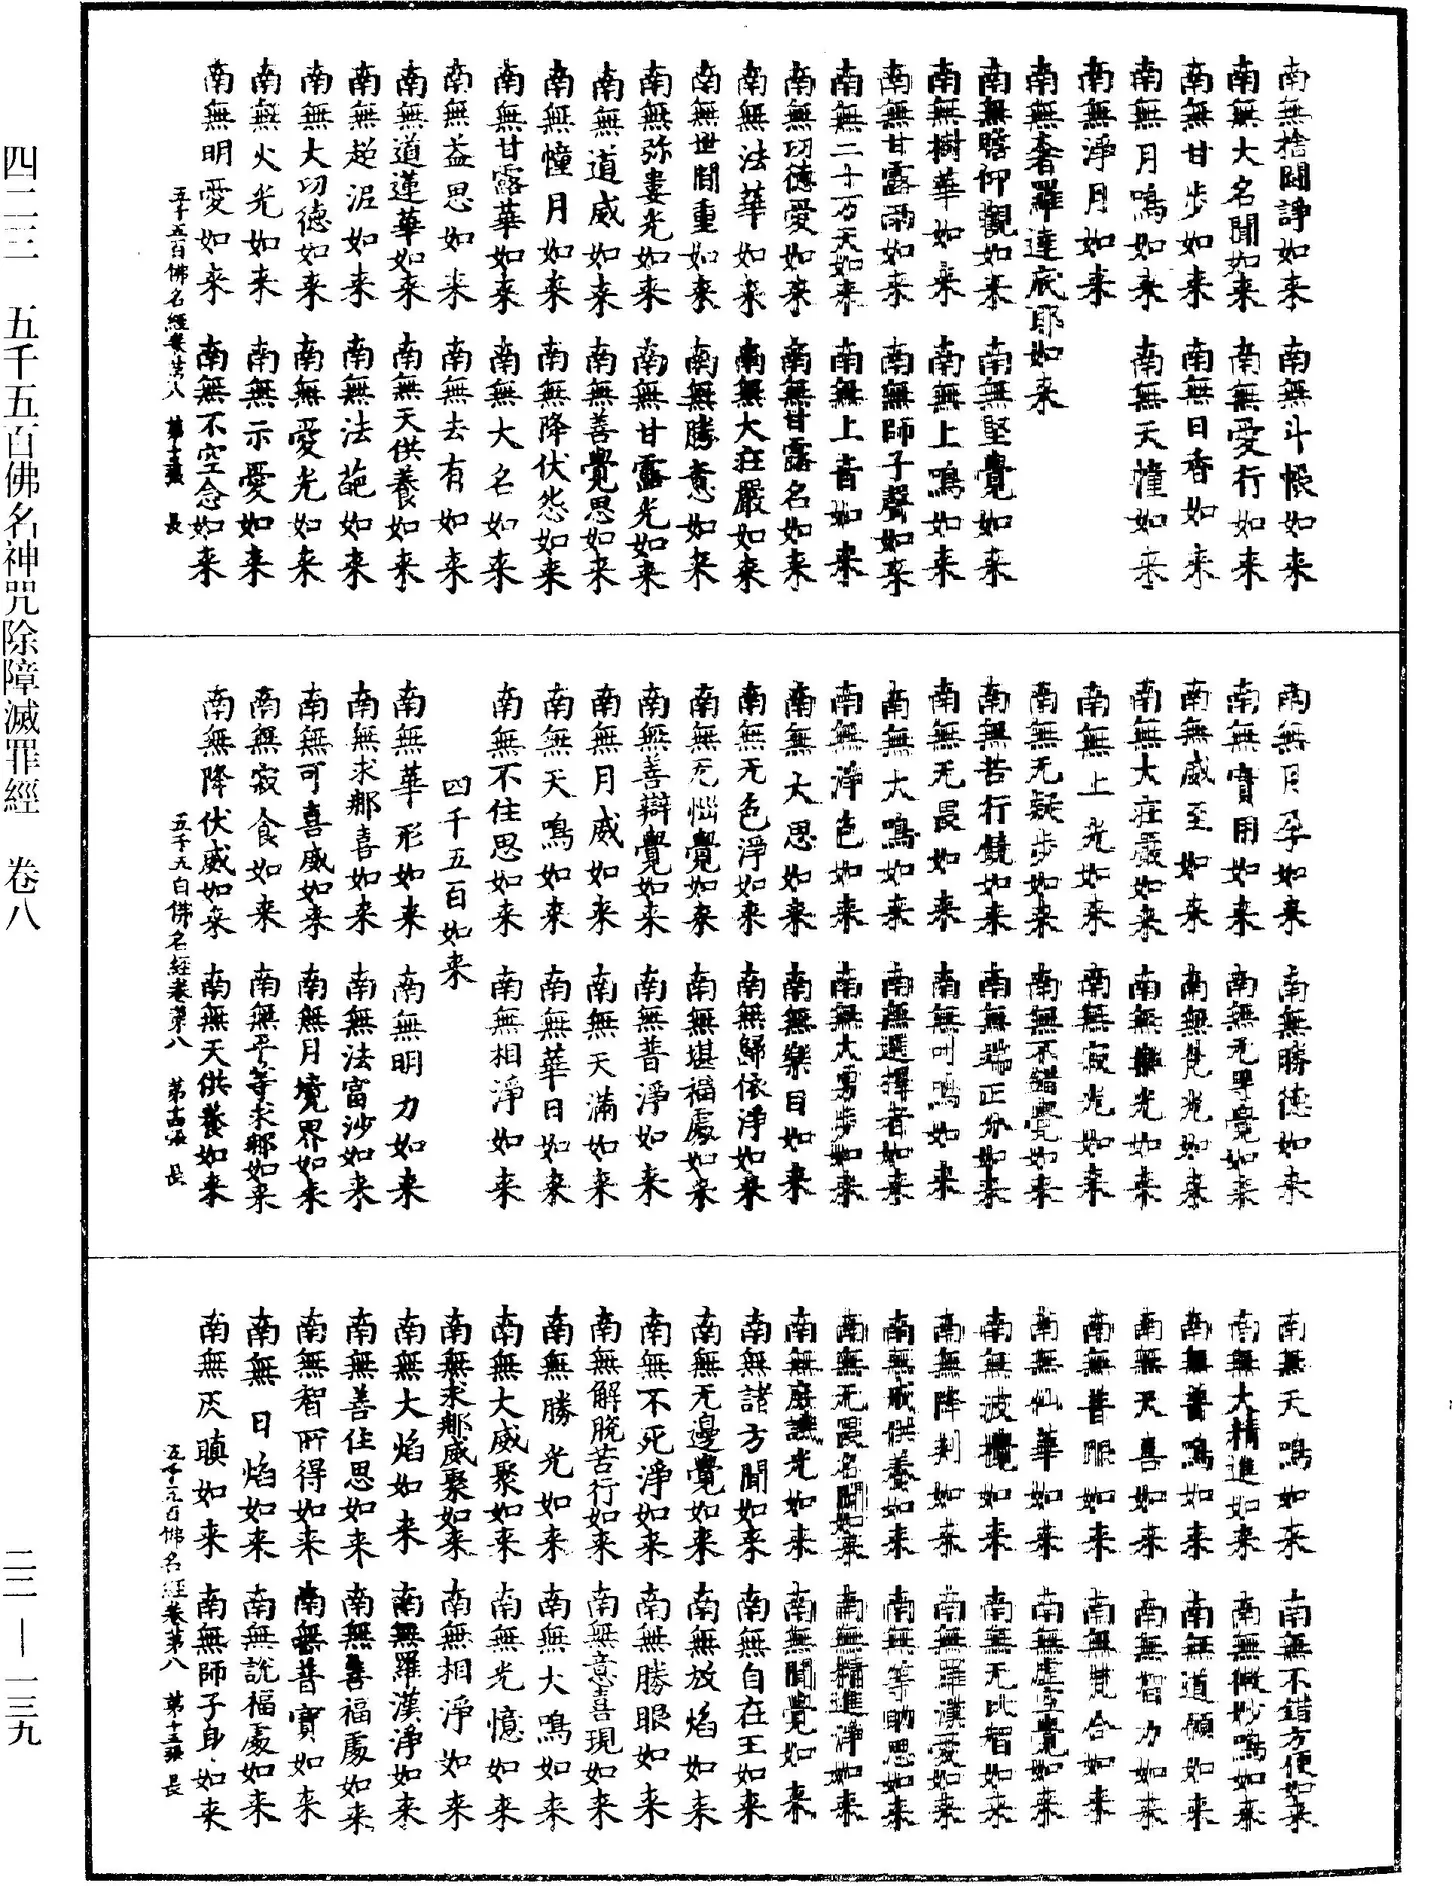 南無捨鬪諍如来　南無斗帳如来
南無大名聞如来　南無愛行如来
南無甘步如来　南無日香如来
南無月鳴如来　南無天幢如来
南無淨月如来
南無奢羅達底耶如来
南無瞻仰觀如来　南無堅覺如来
南無樹華如来　南無上鳴如来
南無甘露雨如来　南無師子聲如来
南無二十乃天如来　南無上首如来
南無功德愛如来　南無甘露名如来
南無法華如来　南無大莊嚴如来
南無世閒重如来　南無勝意如来
南無弥婁光如来　南無甘露光如来
南無道威如来　南無善覺思如来
南無幢月如来　南無降伏怨如来
南無甘露華如来　南無大名如来
南無益思如来　南無去有如来
南無道蓮華如来　南無天供養如来
南無超泥如来　南無法葩如来
南無大功德如来　南無愛光如来
南無火光如来　南無示愛如来
南無明愛如来　南無不空念如来
五千五百佛名經卷第八　第十三張　長
南無月孕如来　南無勝德如来
南無實用如来　南無无畢竟如来
南無威至如来　南無梵光如来
南無大莊嚴如来　南無樂光如来
南無上光如来　南無寂光如来
南無无疑步如来　南無不錯覺如来
南無苦行鏡如来　南無端正分如来
南無无畏如来　南無叫鳴如来
南無大鳴如来　南無選擇者如来
南無淨色如来　南無大勇步如来
南無大思如来　南無樂目如来
南無无色淨如来　南無歸依淨如来
南無无惱覺如来　南無堪福處如来
南無善辯覺如来　南無普淨如来
南無月威如来　南無天滿如来
南無天鳴如来　南無華日如来
南無不住思如来　南無相淨如来
四千五百如来
南無華形如来　南無明力如来
南無求那喜如来　南無法富沙如来
南無可喜威如来　南無月境界如来
南無寂食如来　南無平等求那如来
南無降伏威如来　南無天供養如来
五千五百佛名經卷第八　第十四張　長
南無天鳴如来　南無不錯方便如来
南無大精進如来　南無微妙鳴如来
南無普鳴如来　南無道願如来
南無天喜如来　南無智力如来
南無普眼如来　南無梵合如来
南無仙華如来　南無虛空覺如来
南無波櫬如来　南無无比智如来
南無降刺如来　南無羅漢愛如来
南無成供養如来　南無等助思如来
南無无畏名聞如来　南無精進淨如来
南無庭議光如来　南無聞覺如来
南無諸方聞如来　南無自在王如来
南無无邊覺如来　南無放焰如来
南無不死淨如来　南無勝眼如来
南無解脫苦行如来　南無意喜現如来
南無勝光如来　南無大鳴如来
南無大威聚如来　南無光憶如来
南無求那威聚如来　南無相淨如来
南無大焰如来　南無羅漢淨如来
南無善住思如来　南無善福處如来
南無智所得如来　南無普寶如来
南無日焰如来　南無說福處如来
南無仄瞋如来　南無師子身如来
五千五百佛名經卷第八　第十五張　長
四二三　五千五百佛名神咒除障滅罪經　卷八
二三—一三九